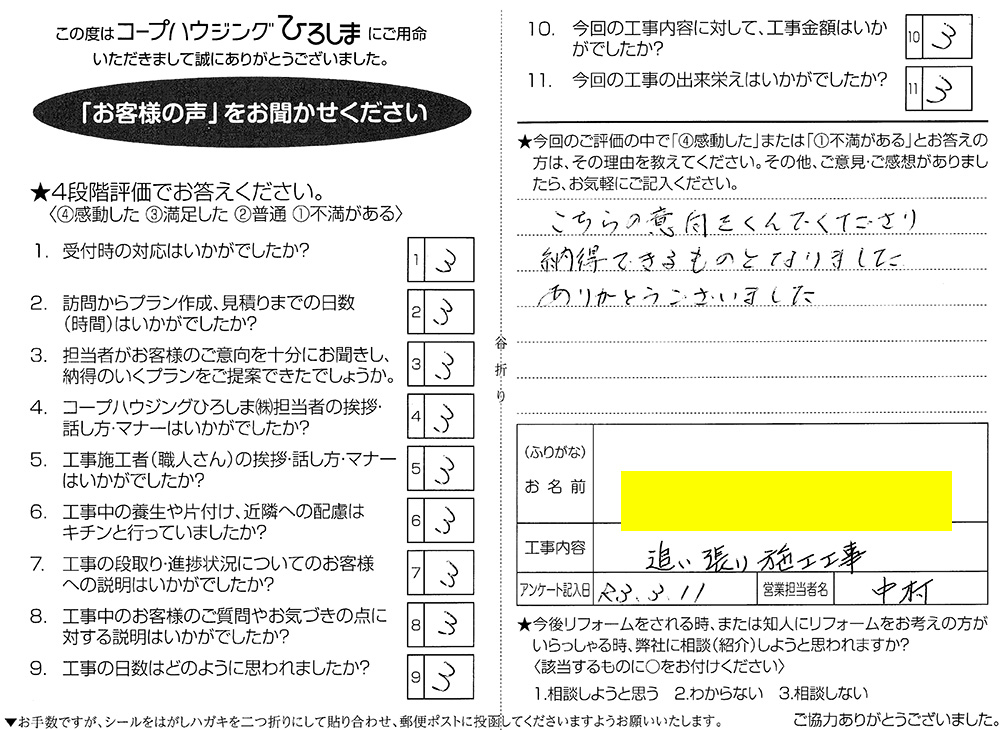 この度はコープハウジングひろしまにご用命
いただきまして誠にありがとうございました。
「お客様の声」をお聞かせください
★4段階評価でお答えください。
〈④感動した ③満足した ②普通 ①不満がある〉
1. 受付時の対応はいかがでしたか?
1 3
2. 訪問からプラン作成、見積りまでの日数
(時間)はいかがでしたか?
2 3
3. 担当者がお客様のご意向を十分にお聞きし、
納得のいくプランをご提案できたでしょうか。
3 3
4. コープハウジングひろしま㈱担当者の挨拶・
話し方・マナーはいかがでしたか?
4 3
5. 工事施工者(職人さん)の挨拶・話し方・マナー
はいかがでしたか?
5 3
6. 工事中の養生や片付け、近隣への配慮は
キチンと行っていましたか?
6 3
7. 工事の段取り・進捗状況についてのお客様
への説明はいかがでしたか?
7 3
8. 工事中のお客様のご質問やお気づきの点に
対する説明はいかがでしたか?
8 3
9. 工事の日数はどのように思われましたか?
9 3
谷折り
10. 今回の工事内容に対して、工事金額はいか
がでしたか?
10 3
11. 今回の工事の出来栄えはいかがでしたか?
11 3
★今回のご評価の中で「④感動した」または「①不満がある」とお答えの
方は、その理由を教えてください。その他、ご意見・ご感想がありまし
たら、お気軽にご記入ください。
こちらの意向をくんでくださり
納得できるものとなりました
ありがとうございました
(ふりがな)
お名前
工事内容 追い張り施工工事
アンケート記入日 R3.3.11 営業担当者名 中村
★今後リフォームをされる時、または知人にリフォームをお考えの方が
いらっしゃる時、弊社に相談(紹介)しようと思われますか?
〈該当するものに○をお付けください〉
1.相談しようと思う 2.わからない 3.相談しない
▼お手数ですが、シールをはがしハガキを二つ折りにして貼り合わせ、郵便ポストに投函してくださいますようお願いいたします。
ご協力ありがとうございました。